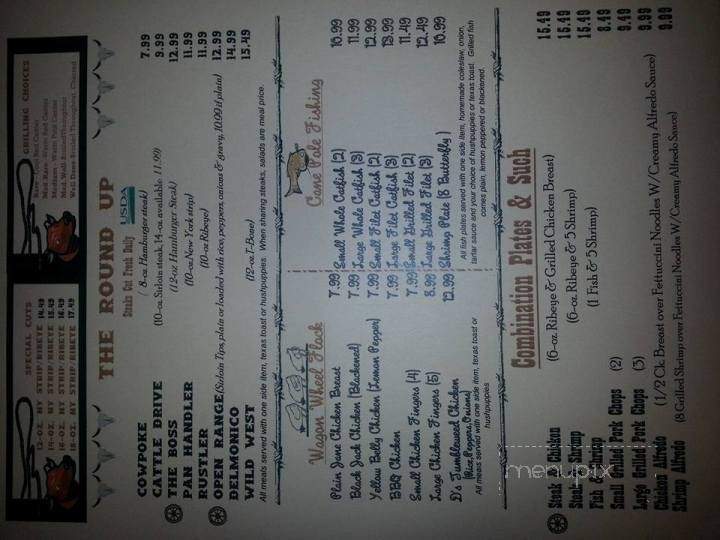 SPECIAL CUTS
12-OZ. NY STRIP/RIBEYE 14.49
14-OZ. NY STRIP/RIBEYE 15.49
16-OZ. NY STRIP/RIBEYE 16.49
18-OZ. NY STRIP/RIBEYE 17.49
GRILLING CHOICES
Rare- Cool Red Center
Med Rare- Warm Red Center
Medium- Warm Pink Center
Med. Well- Broiled Throughout
Well Done- Broiled Throughout, Charred
THE ROUND UP
Steaks Cut Fresh Daily USDA
COWPOKE (8-oz. Hamburger steak) 7.99
CATTLE DRIVE (10-oz. Sirloin steak, 14-oz available 11.99) 9.99
THE BOSS (12-oz Hamburger Steak) 12.99
PAN HANDLER (10-oz New York strip) 11.99
RUSTLER (10-oz Ribeye) 11.99
OPEN RANGE (Sirloin Tips, plain or loaded with rice, peppers, onions & gravy, 10.99 if plain) 12.99
DELMONICO 14.99
WILD WEST (12-oz. T-Bone) 15.49
All meals served with one side item, texas toast or hushpuppies. When sharing steaks, salads are meal price.
Wagon Wheel Flock
Plain Jane Chicken Breast 7.99
Black Jack Chicken (Blackened) 7.99
Yellow Belly Chicken (Lemon Pepper) 7.99
BBQ Chicken 7.99
Small Chicken Fingers (4) 7.99
Large Chicken Fingers (5) 8.99
D's Tumbleweed Chicken 12.99
(Rice, Peppers, Onions)
All meals served with one side item, texas toast or
hushpuppies
Cane Pole Fishing
Small Whole Catfish (2) 10.99
Large Whole Catfish (3) 11.99
Small Filet Catfish (2) 12.99
Large Filet Catfish (3) 13.99
Small Grilled Filet (2) 11.49
Large Grilled Filet (3) 12.49
Shrimp Plate (8 Butterfly) 10.99
All fish plates served with one side item, homemade coleslaw, onion,
tartar sauce and your choice of hushpuppies or texas toast. Grilled fish
comes plain, lemon peppered or blackened.
Combination Plates & Such
Steak & Chicken (6-oz. Ribeye & Grilled Chicken Breast) 15.49
Steak & Shrimp (6-oz. Ribeye & 5 Shrimp) 15.49
Fish & Shrimp (1 Fish & 5 Shrimp) 15.49
Small Grilled Pork Chops (2) 8.49
Large Grilled Pork Chops (3) 9.49
Chicken Alfredo (1/2 Ck. Breast over Fettuccini Noodles W/Creamy Alfredo Sauce) 9.99
Shrimp Alfredo (8 Grilled Shrimp over Fettuccini Noodles W/Creamy Alfredo Sauce) 9.99
menupix